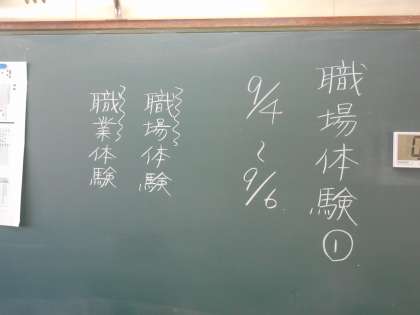 職場体験①
9/4
～
9/6
職場体験
職業体験